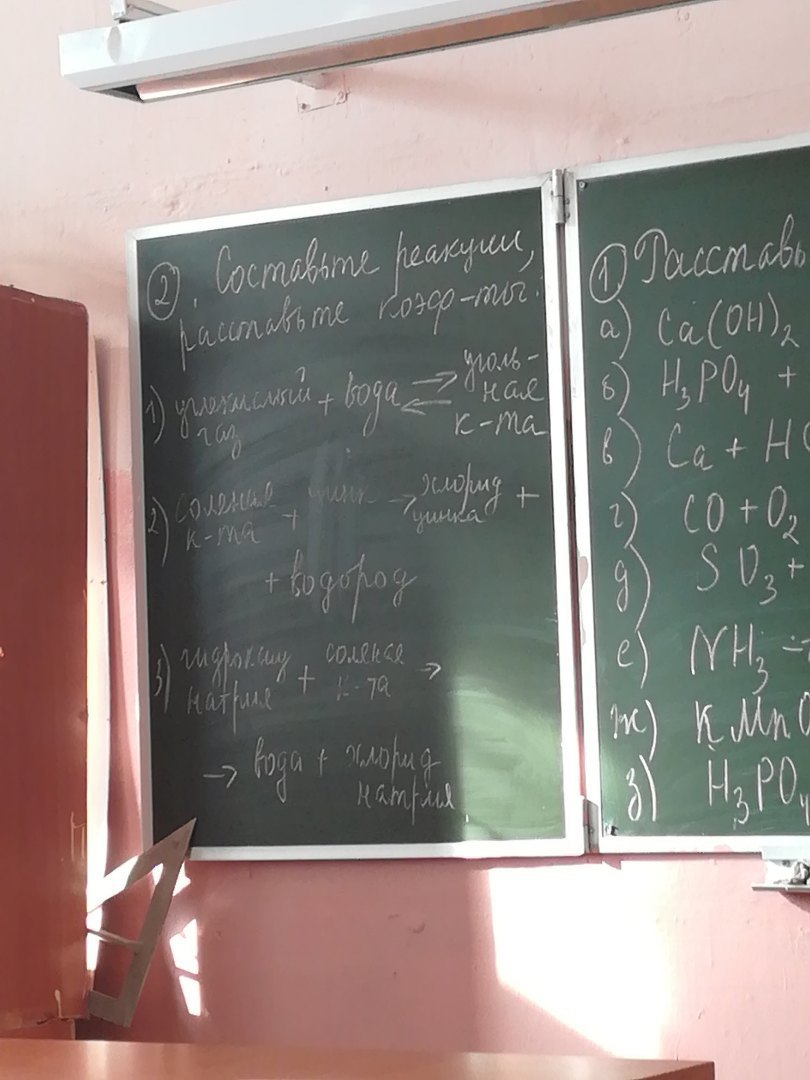 ② Составьте реакции,
расставьте коэф-ты.
1) углекислый газ + вода ⇄ уголь-
ная
к-та
2) соляная к-та + цинк → хлорид цинка +
+ водород
3) гидроксид натрия + соляная к-та →
→ вода + хлорид
натрия
① Расставь
а) Ca(OH)₂
б) H₃PO₄ +
в) Ca + H
г) CO + O₂
д) SO₃ +
е) NH₃ +
ж) KMn
з) H₃PO₄